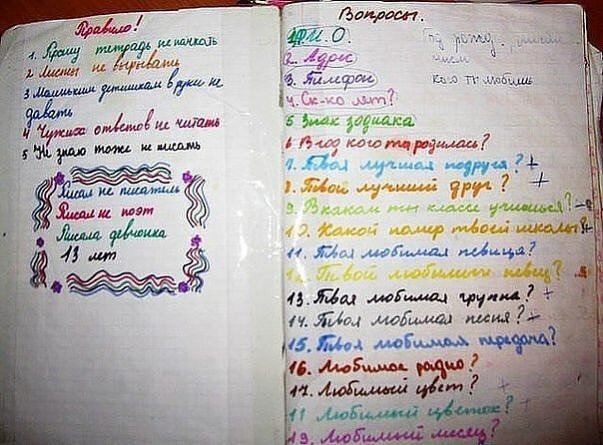 Правило!
1. Прошу тетрадь не пачкать
2 Листы не вырывать
3 Маленьким детишкам в руки не
давать
4 Чужих ответов не читать
5 Не знаю тоже не писать
Писал не писатель
Писал не поэт
Писала девчонка
13 лет
Вопросы.
1. Ф.И.О.
2. Адрес
3. Телефон
кого ты любишь
4. Ск-ко лет?
5 Знак зодиака
6 В год кого ты родилась?
7. Твоя лучшая подруга? +
8. Твой лучший друг? +
9. В каком ты классе учишься?
10. Какой номер твоей школы?
11. Твоя любимая певица?
12. Твой любимый певец?
13. Твоя любимая группа? +
14. Твоя любимая песня? +
15. Твоя любимая передача?
16. Любимое радио?
17. Любимый цвет? +
Любимый цветок? +
19. Любимый месяц?